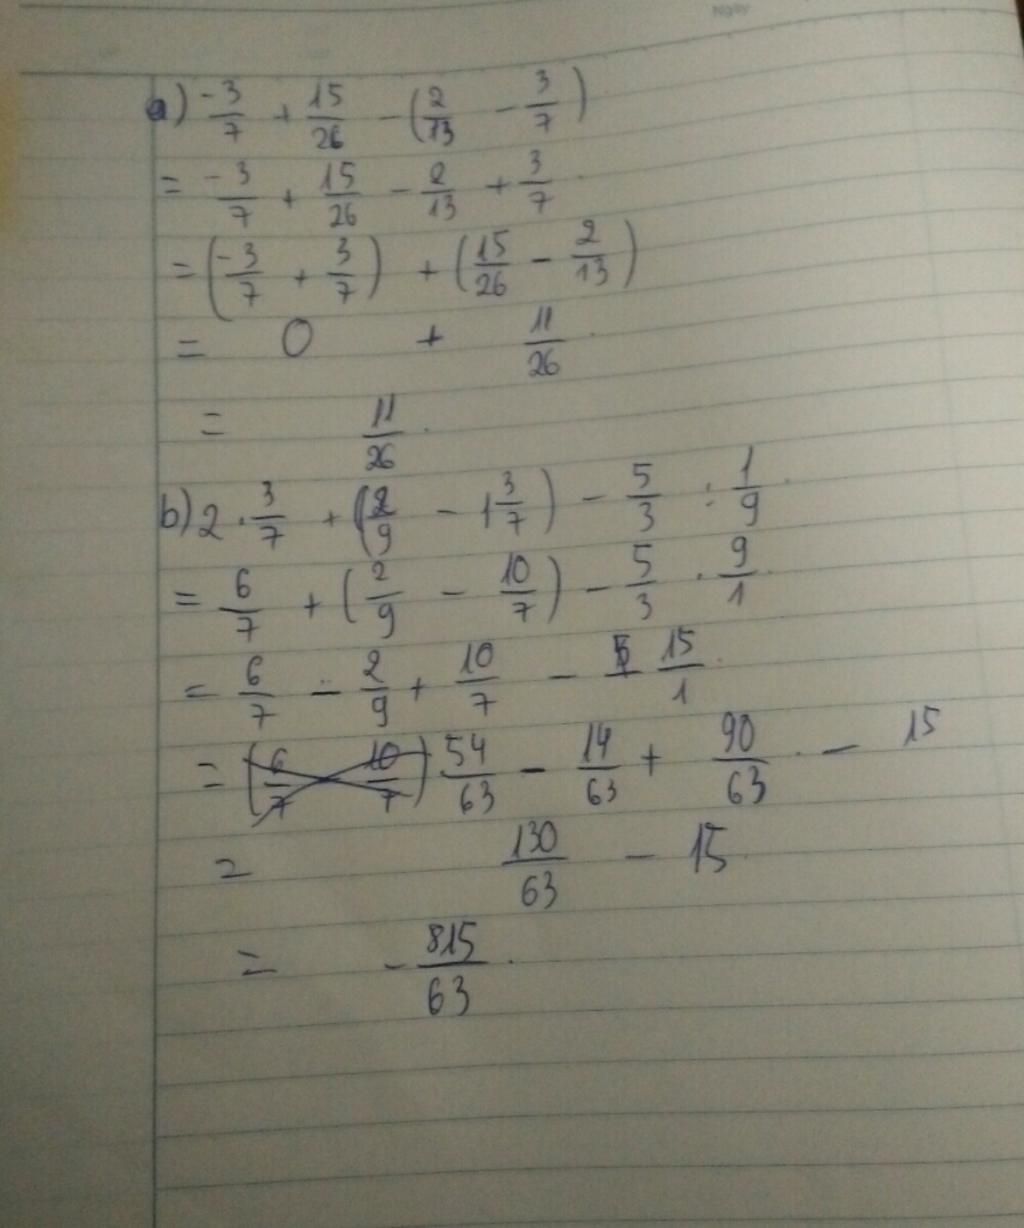 Ngày
a) -3/7 + 15/26 - (2/13 - 3/7)
= -3/7 + 15/26 - 2/13 + 3/7
= (-3/7 + 3/7) + (15/26 - 2/13)
= 0 + 11/26
= 11/26.
b) 2 . 3/7 + (2/9 - 1 3/7) - 5/3 : 1/9
= 6/7 + (2/9 - 10/7) - 5/3 . 9/1
= 6/7 - 2/9 + 10/7 - 15/1
= (6/7 10/7) 54/63 - 14/63 + 90/63 - 15
= 130/63 - 15
= -815/63.